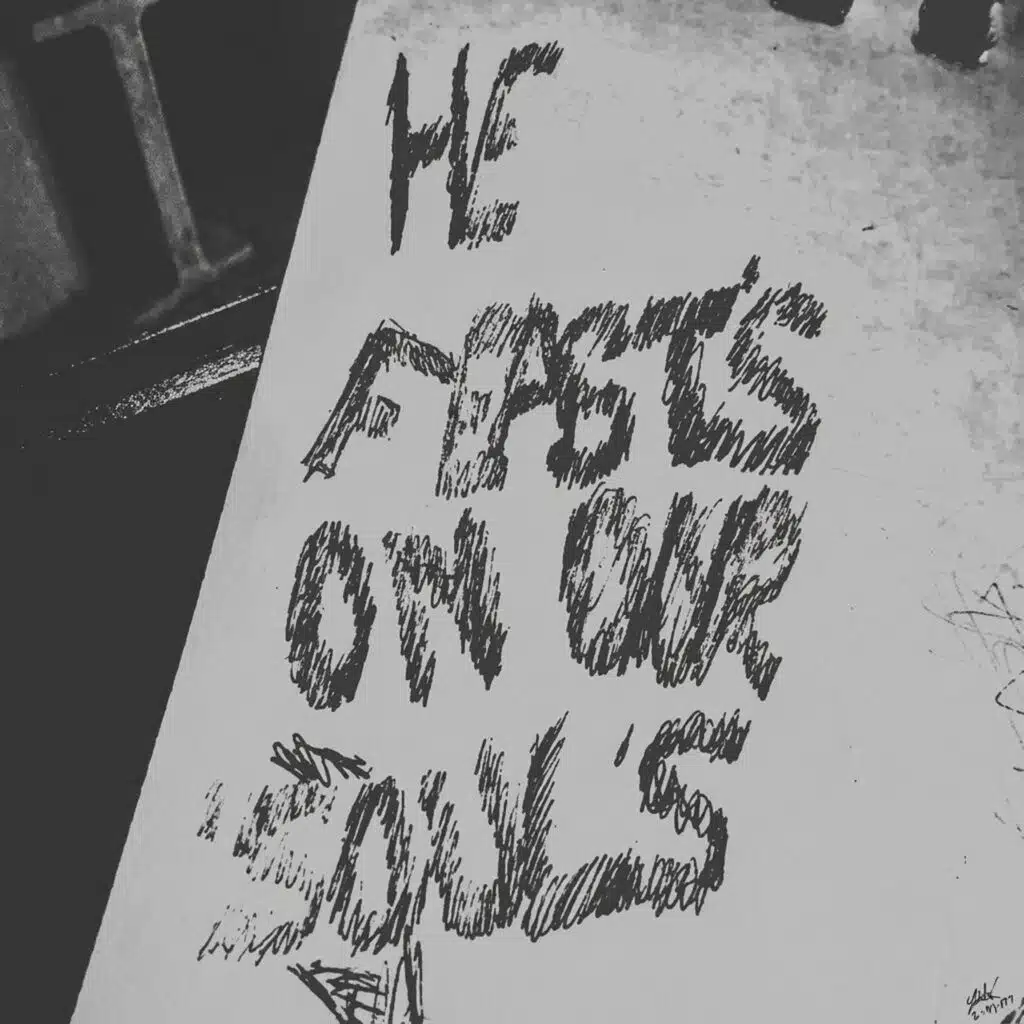 HE
FEAST'S
ON OUR
SOUL'S